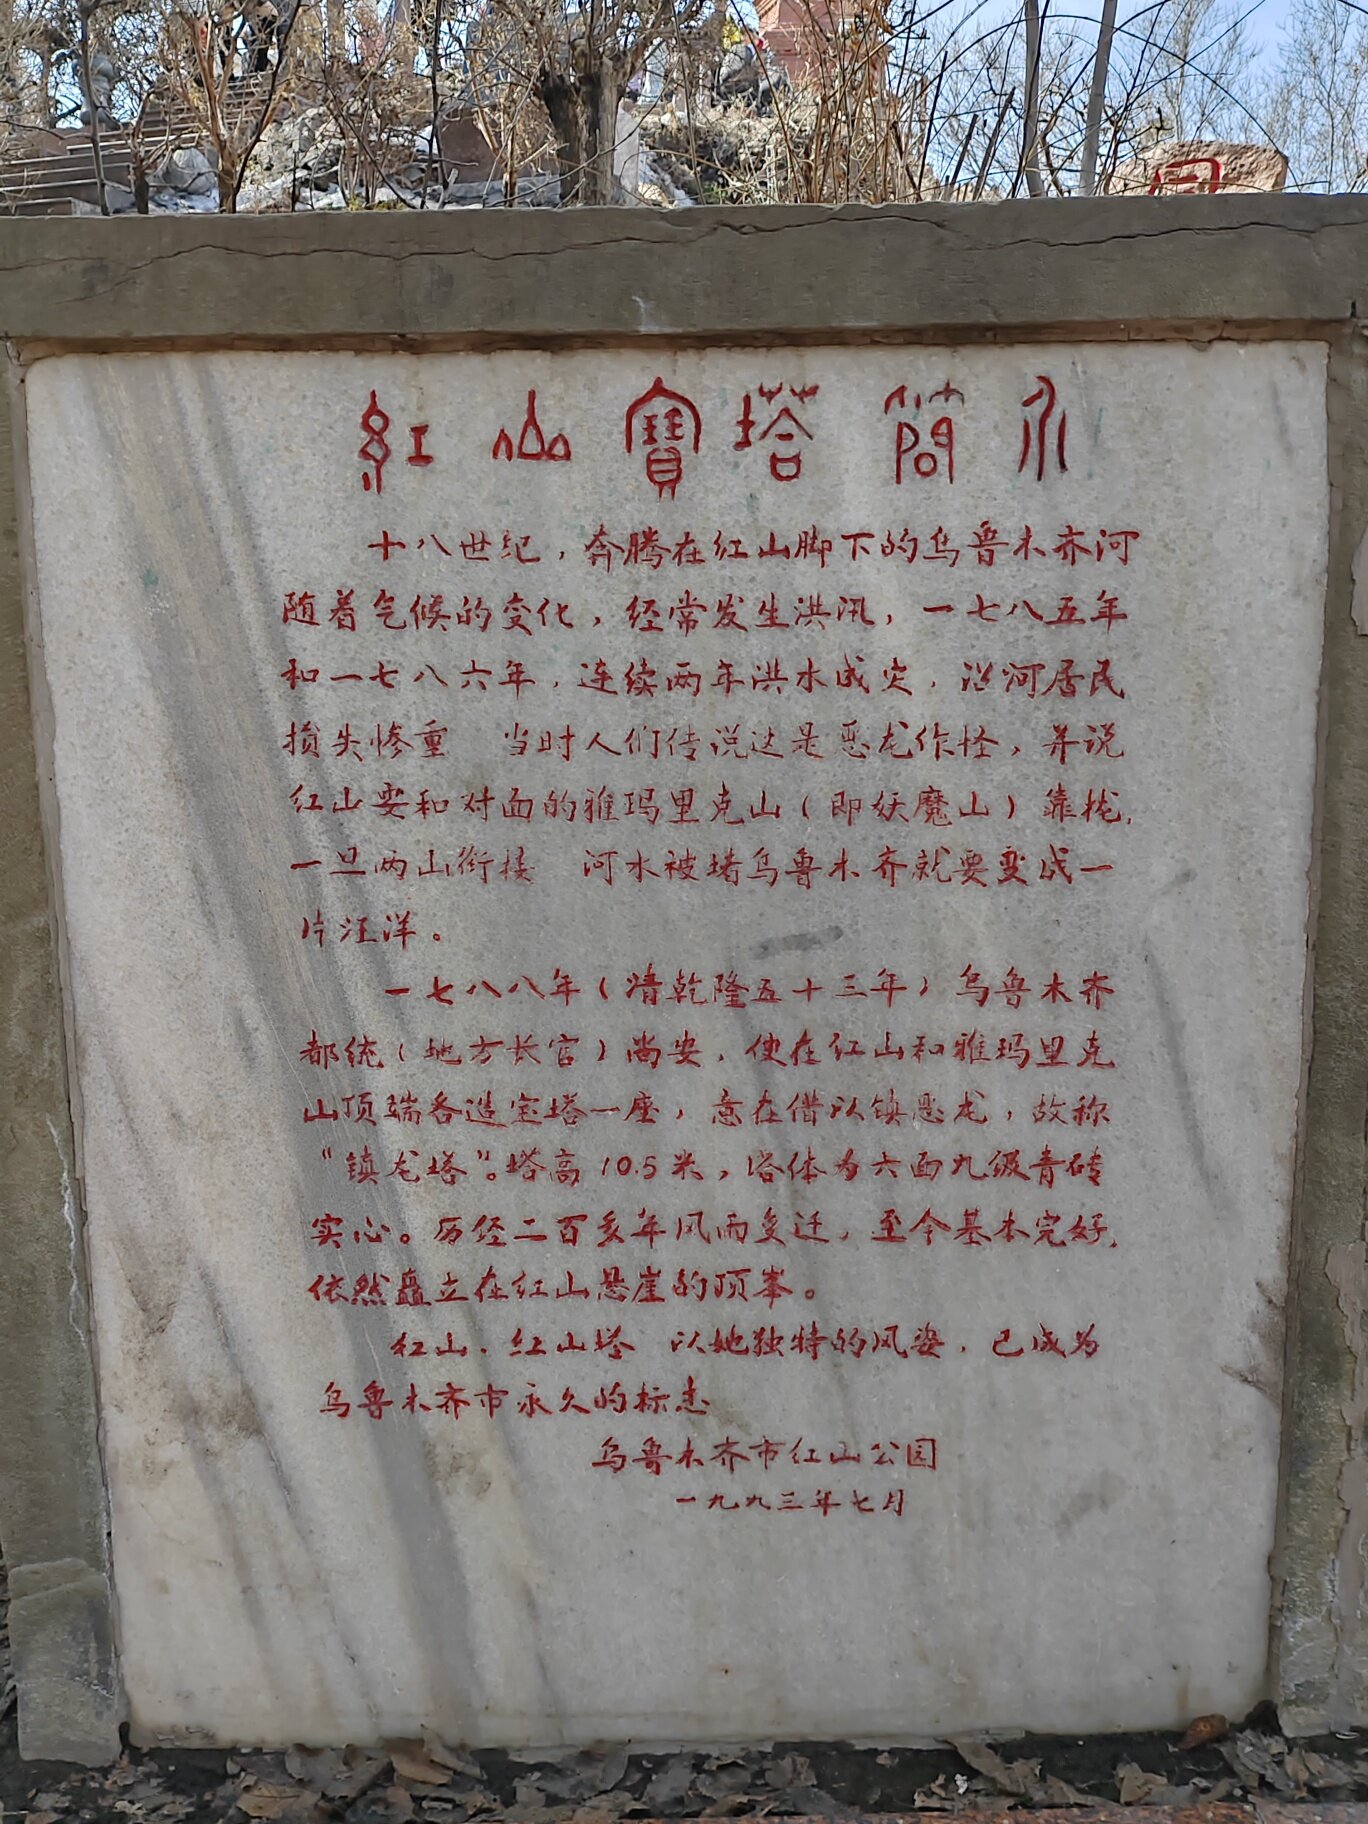 紅山寶塔簡介
十八世纪，奔腾在红山脚下的乌鲁木齐河
随着气候的变化，经常发生洪汛，一七八五年
和一七八六年，连续两年洪水成灾，沿河居民
损失惨重 当时人们传说这是恶龙作怪，并说
红山要和对面的雅玛里克山（即妖魔山）靠拢，
一旦两山衔接 河水被堵乌鲁木齐就要变成一
片汪洋。
一七八八年（清乾隆五十三年）乌鲁木齐
都统（地方长官）尚安，便在红山和雅玛里克
山顶端各造宝塔一座，意在借以镇恶龙，故称
“镇龙塔”。塔高10.5米，塔体为六面九级青砖
实心。历经二百多年风雨变迁，至今基本完好，
依然矗立在红山悬崖的顶峯。
红山、红山塔 以她独特的风姿，已成为
乌鲁木齐市永久的标志
乌鲁木齐市红山公园
一九九三年七月